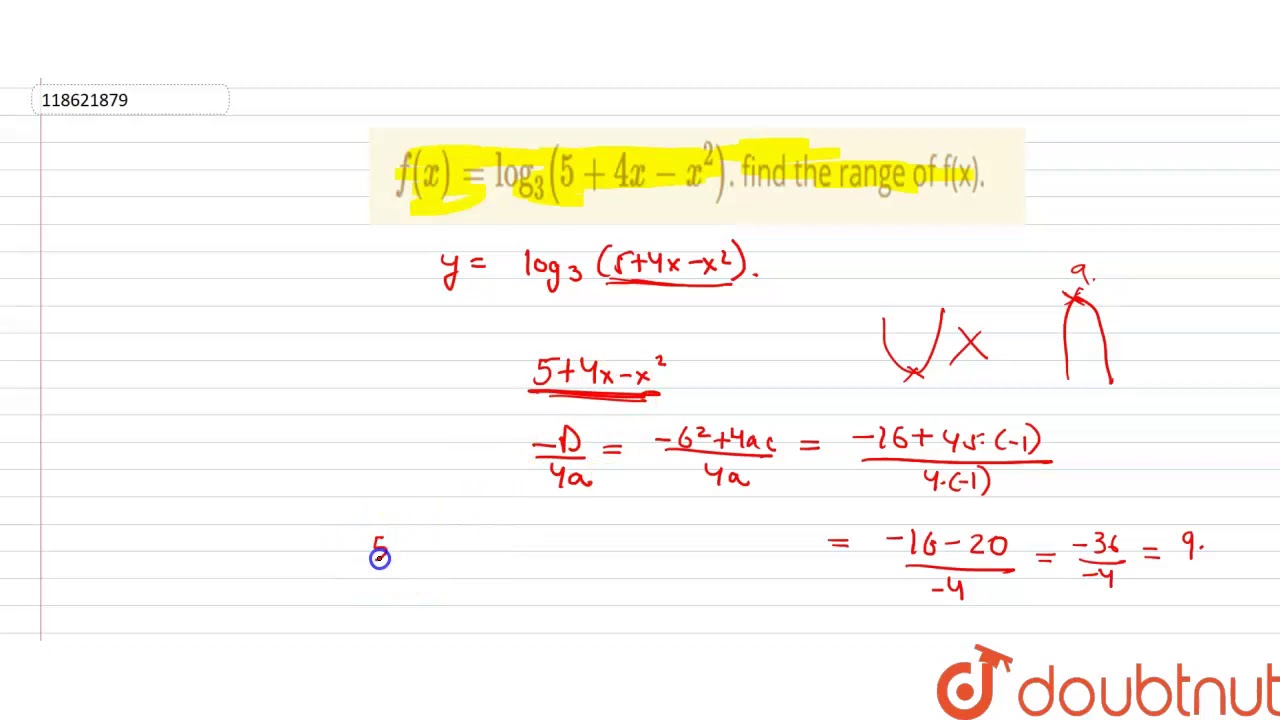 118621879
f(x) = log₃(5 + 4x − x²). find the range of f(x).
y = log₃ (5+4x−x²).
9.
5+4x−x²
−D/4a = −b²+4ac/4a = −16+45·(−1)/4·(−1)
= −16−20/−4 = −36/−4 = 9.
5
doubtnut